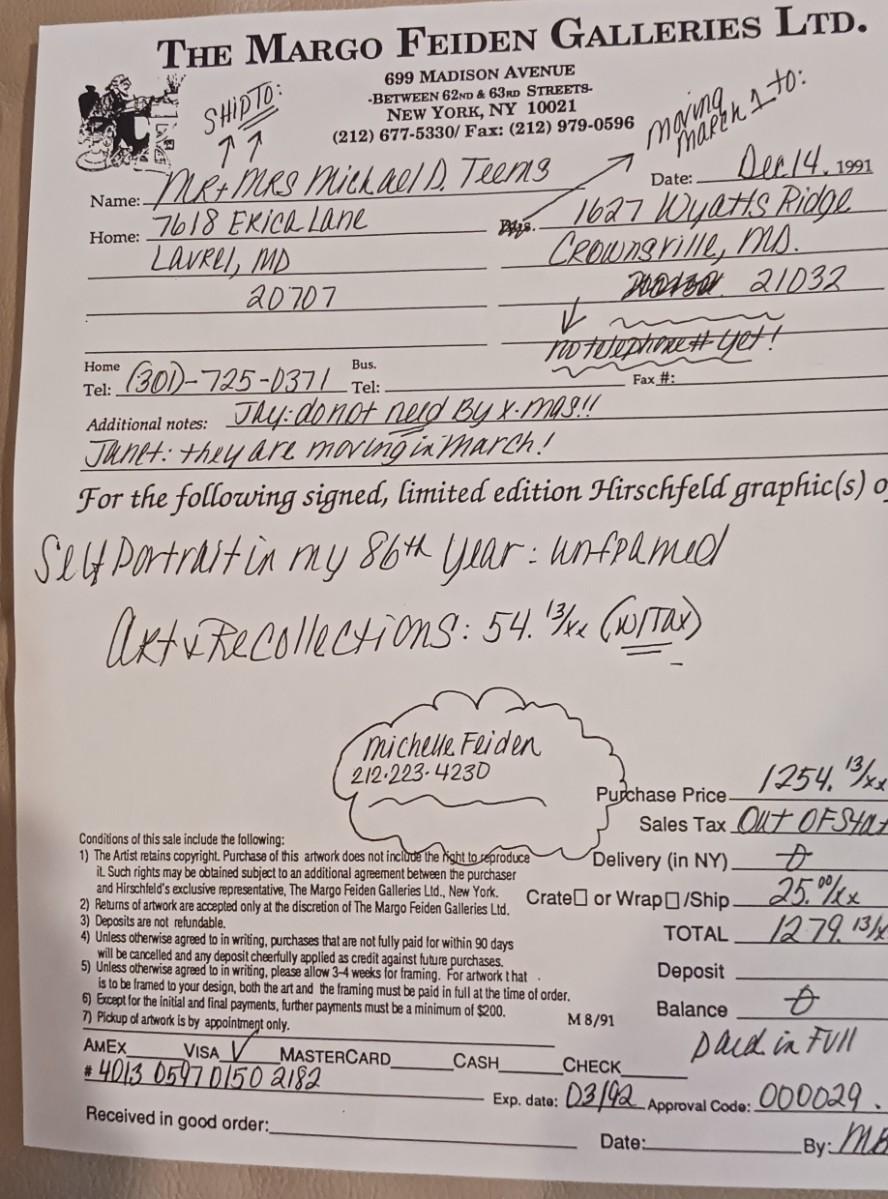 THE MARGO FEIDEN GALLERIES LTD.
699 MADISON AVENUE
-BETWEEN 62ND & 63RD STREETS-
NEW YORK, NY 10021
(212) 677-5330/ Fax: (212) 979-0596
SHIP TO:
moving march 1 to:
Name: MR + MRS Michael D. Teems Date: Dec 14, 1991
Home: 7618 ERICA Lane 1627 Wyatts Ridge
Laurel, MD Crownsville, MD.
20707 21032
no telephone # yet!
Home Tel: (301)-725-0371 Bus. Tel: Fax #:
Additional notes: Jay: do not need By X-mas!!
Janet: they are moving in March!
For the following signed, limited edition Hirschfeld graphic(s)
Self Portrait in my 86th year: unframed
Art & Recollections: 54. 13/xx (w/Tax)
Michelle Feiden
212-223-4230
Purchase Price 1254. 13/xx
Sales Tax Out OF Stat
Delivery (in NY) 0
Crate □ or Wrap □/Ship 25. 00/xx
TOTAL 1279. 13/x
Deposit
Balance 0
paid in Full
Conditions of this sale include the following:
1) The Artist retains copyright. Purchase of this artwork does not include the right to reproduce
it. Such rights may be obtained subject to an additional agreement between the purchaser
and Hirschfeld's exclusive representative, The Margo Feiden Galleries Ltd., New York.
2) Returns of artwork are accepted only at the discretion of The Margo Feiden Galleries Ltd.
3) Deposits are not refundable.
4) Unless otherwise agreed to in writing, purchases that are not fully paid for within 90 days
will be cancelled and any deposit cheerfully applied as credit against future purchases.
5) Unless otherwise agreed to in writing, please allow 3-4 weeks for framing. For artwork that
is to be framed to your design, both the art and the framing must be paid in full at the time of order.
6) Except for the initial and final payments, further payments must be a minimum of $200.
7) Pickup of artwork is by appointment only.
M 8/91
AMEX VISA ✓ MASTERCARD CASH CHECK
# 4013 0597 0150 2182
Exp. date: 03/92 Approval Code: 000029
Received in good order: Date: By: